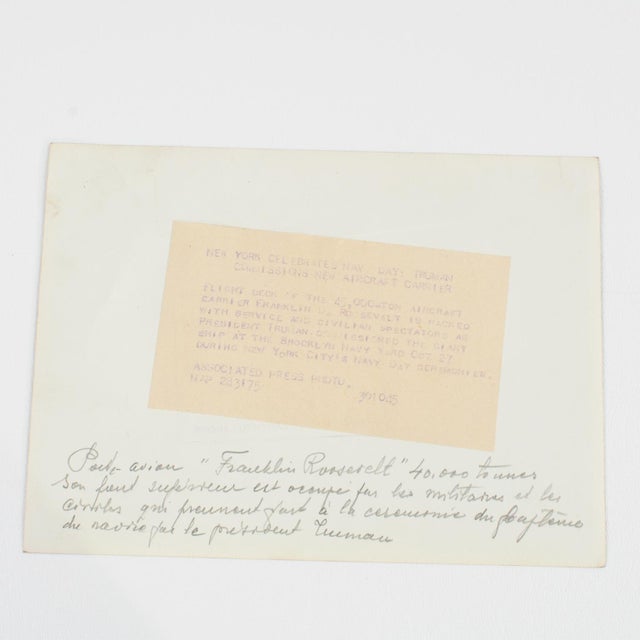 NEW YORK CELEBRATES NAVY DAY: TRUMAN
COMMISSIONS NEW AIRCRAFT CARRIER
FLIGHT DECK OF THE 45,000-TON AIRCRAFT
CARRIER FRANKLIN D. ROOSEVELT IS PACKED
WITH SERVICE AND CIVILIAN SPECTATORS AS
PRESIDENT TRUMAN COMMISSIONED THE GIANT
SHIP AT THE BROOKLYN NAVY YARD OCT 27,
DURING NEW YORK CITY'S NAVY DAY CEREMONIES.
ASSOCIATED PRESS PHOTO.
NAP 283175 301045
Porte-avion "Franklin Roosevelt" 40.000 tonnes
Son pont supérieur est occupé par les militaires et les
civiles qui prennent part à la ceremonie du baptême
du navire par le président Truman